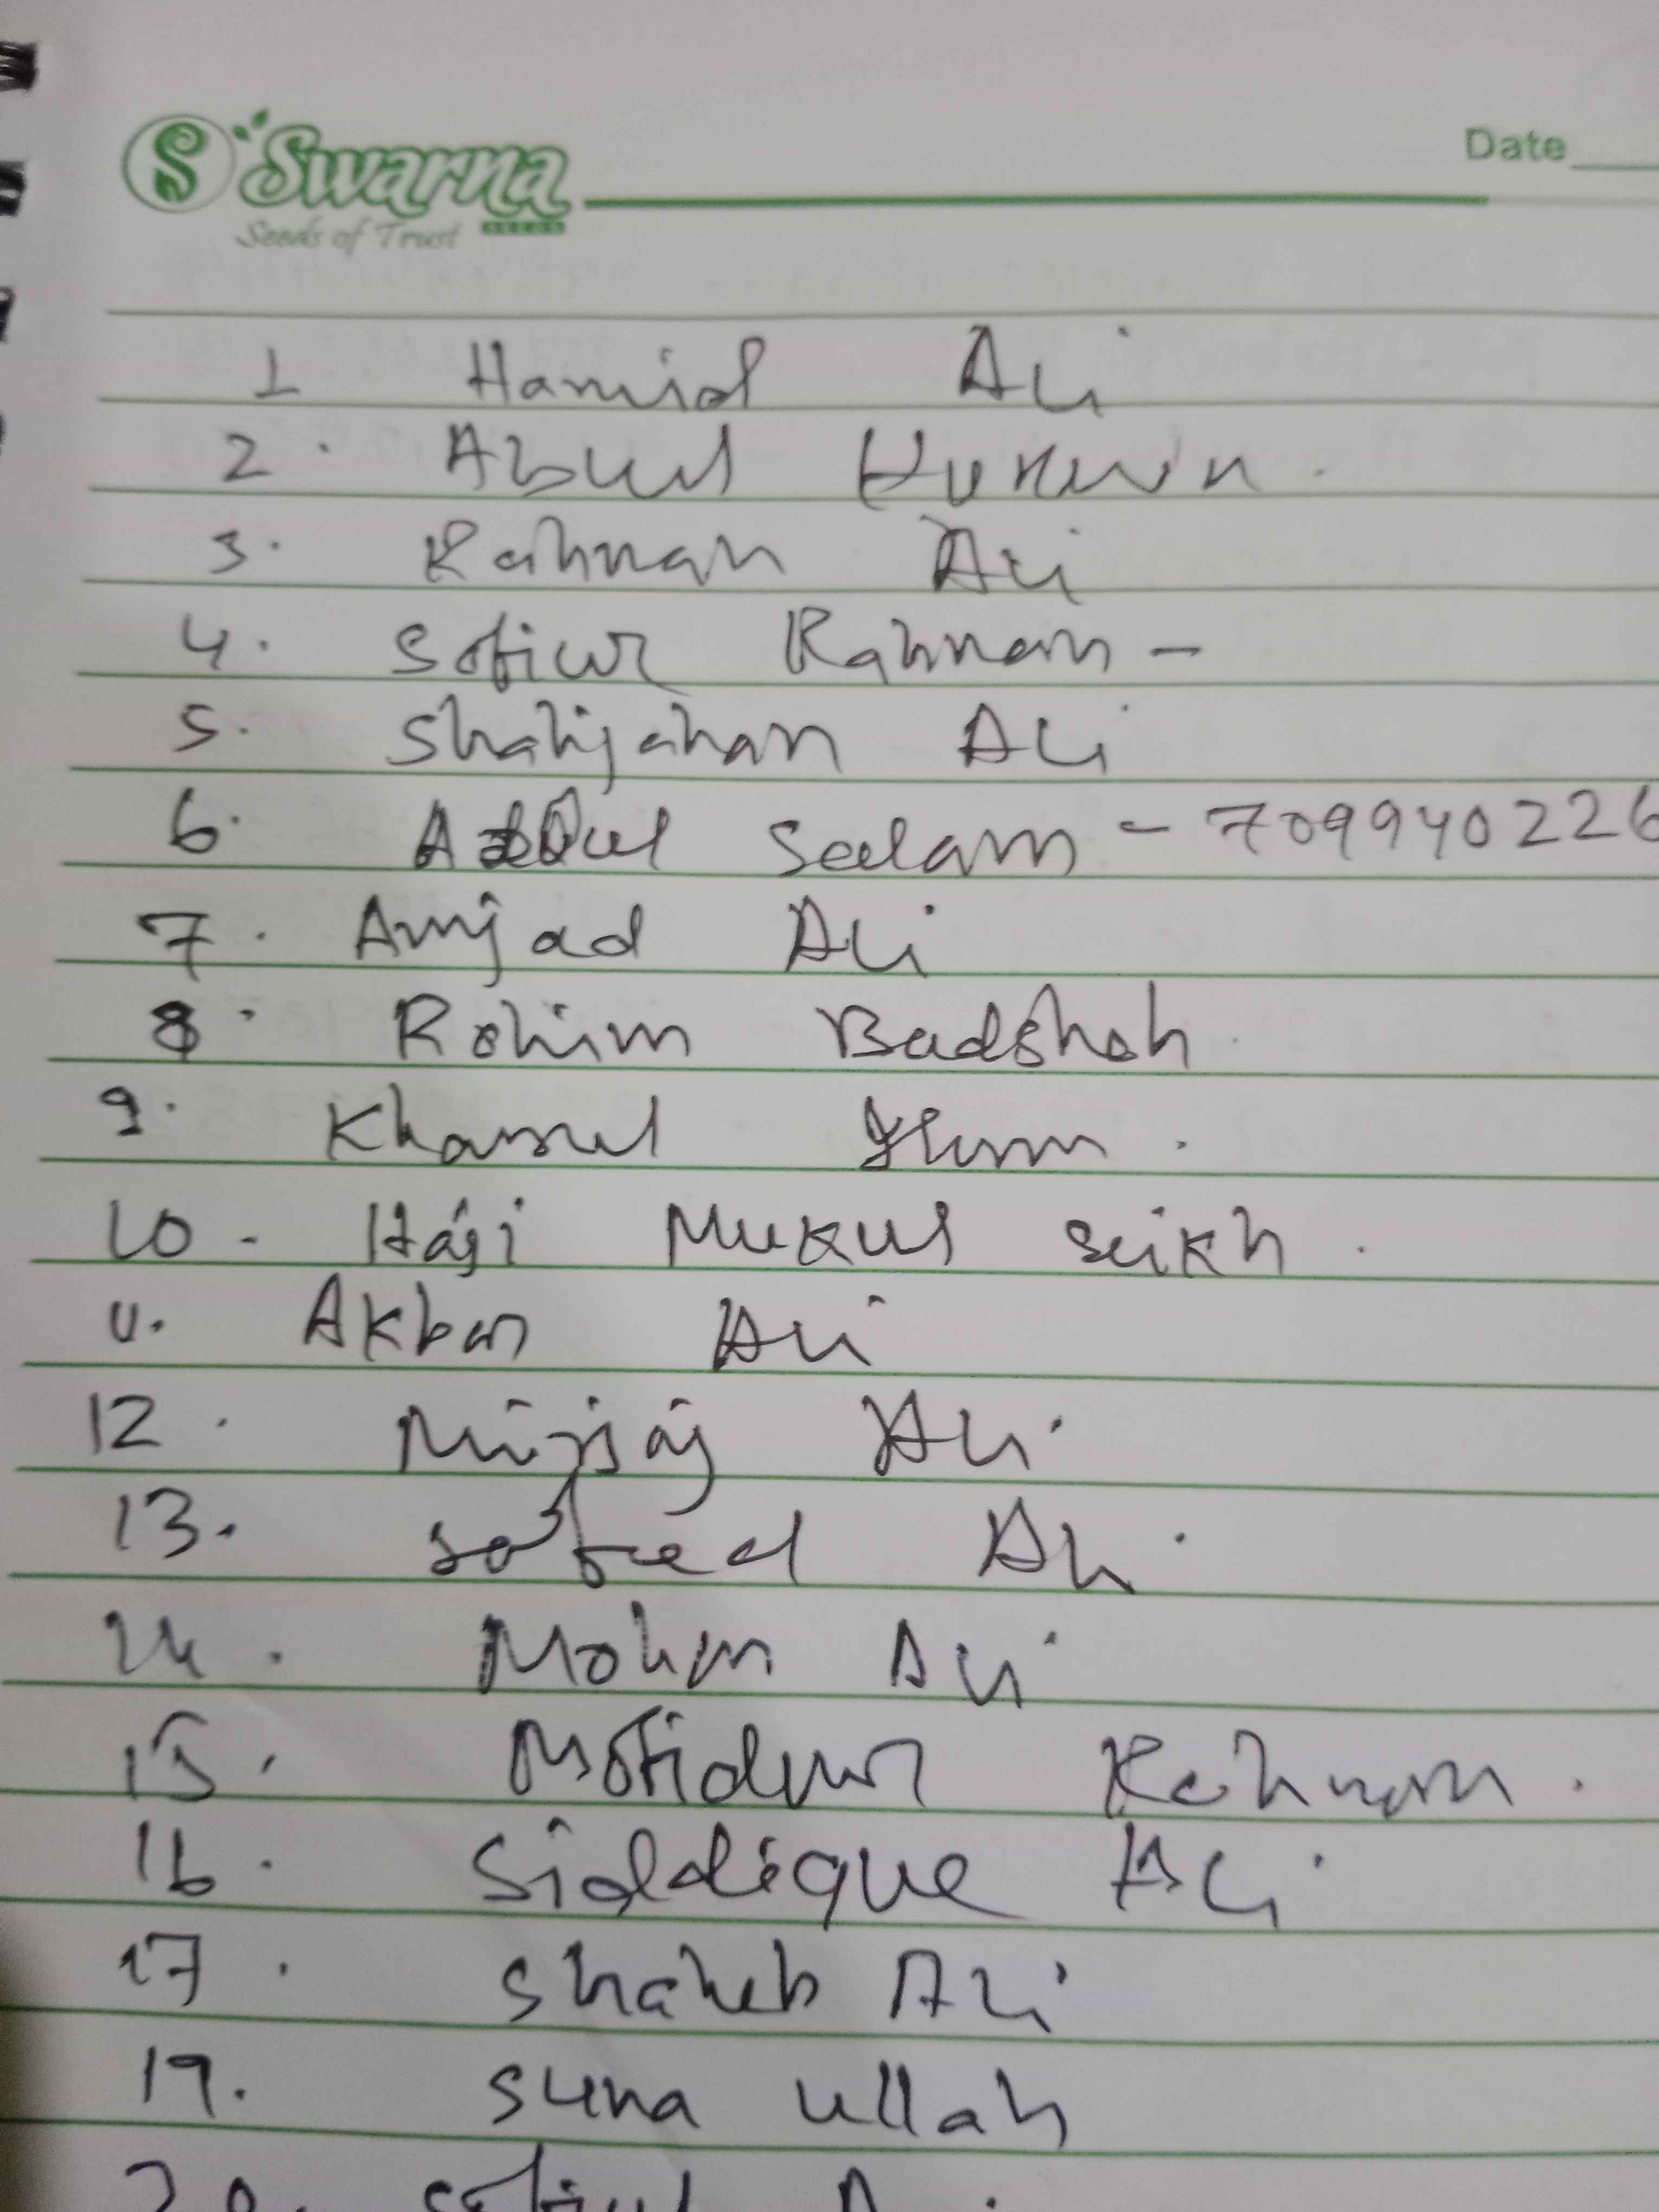 Swarna
SEEDS
Seeds of Trust
Date
1 Hamid Ali
2. Abul
3. Rahman Ali
4. Sofiur Rahman -
5. Shahjahan Ali
6. Abdul Seelam - 709940226
7. Amjad Ali
8. Rohim Badshah.
9. Khamel
10 - Haji Mukul Seikh.
11. Akbar Ali
12. Mirjaj Ali
13. Ali
14. Ali
15. Mofidur Rahman.
16. Siddique Ali
17. Shaheb Ali
19. Suna ullah
20.